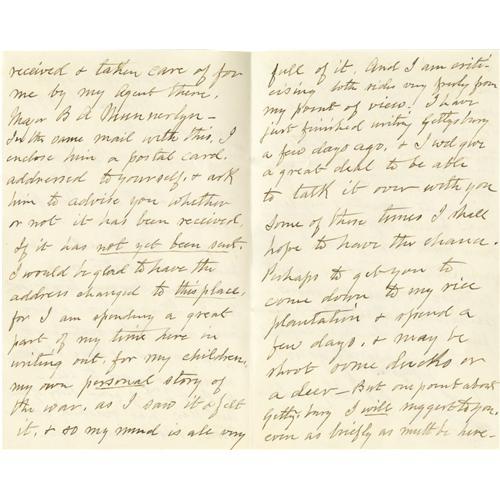 received & taken care of for
me by my Agent there,
Major B d Munnerlyn –
In the same mail with this, I
enclose him a postal card,
addressed to yourself, & ask
him to advise you whether
or not it has been received.
If it has not yet been sent,
I would be glad to have the
address changed to this place,
for I am spending a great
part of my time here in
writing out, for my children,
my own personal story of
the war, as I saw it & felt
it, & so my mind is all very
full of it. And I am criti-
cising both sides very freely from
my point of view! I have
just finished writing Gettysburg
a few days ago, & I wd give
a great deal to be able
to talk it over with you
Some of these times I shall
hope to have the chance.
Perhaps to get you to
come down to my rice
plantation & spend a
few days, & may be
shoot some ducks or
a deer – But one point about
Gettysburg I will suggest to you,
even as briefly as must be here –